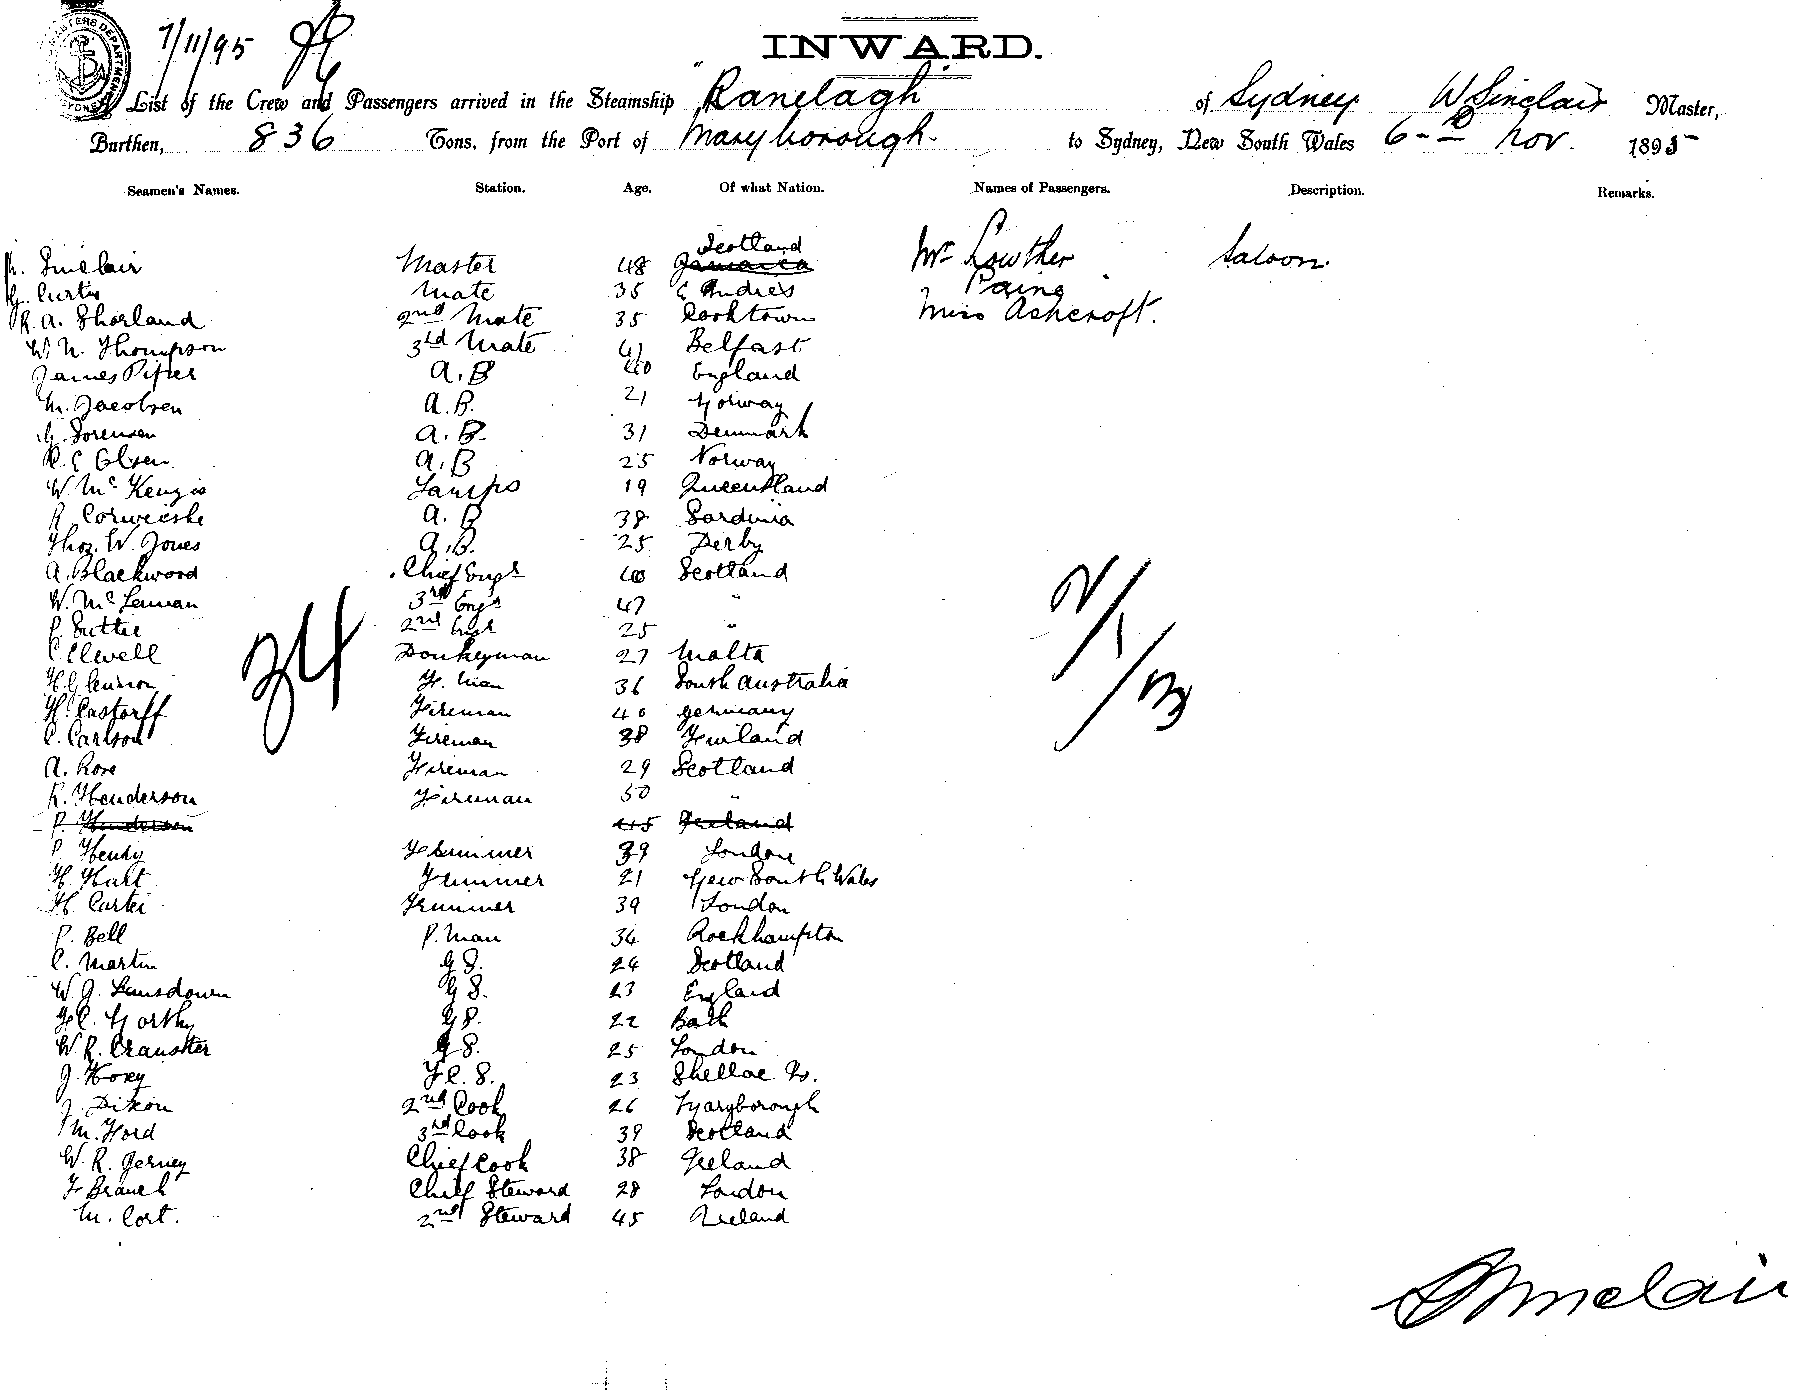 7/11/95
INWARD.
A List of the Crew and Passengers arrived in the Steamship "Ranelagh of Sydney W Sinclair Master,
Burthen, 836 Tons, from the Port of Maryborough. to Sydney, New South Wales 6 Nov. 1895
Seamen's Names. Station. Age. Of what Nation. Names of Passengers. Description. Remarks.
Scotland
Sinclair Master 48 Jamaica Mr Lowther Saloon
G. Curtis Mate 35 St Andres Paine
R. A. Shorland 2nd Mate 35 Cooktown Miss Ashcroft.
W. N. Thompson 3rd Mate 41 Belfast
James Piper A.B 40 England
M. Jacobsen A.B. 21 Norway
Sorensen A.B. 31 Denmark
R. C Olsen A.B 25 Norway
W. Mc Kenzie Lamps 19 Queensland
R A. B 38 Sardinia
Thos. W. Jones A.B. 25 Derby
A. Blackwood Chief Engr 40 Scotland
W. Mc Lennan 3rd Engr 47 "
P Suttie 2nd Engr 25 "
C Elwell Donkeyman 27 Malta
H Glennon F. Man 36 South Australia
H. Castorff Fireman 40 Germany
C. Carlson Fireman 38 Finland
A. Rose Fireman 29 Scotland
R. Henderson Fireman 50 "
P. Henderson 45 Ireland
P Henry Trimmer 39 London
H. Hart Trimmer 21 New South Wales
H. Carter Trimmer 39 London
P. Bell P. Man 34 Rockhampton
C. Martin G S. 24 Scotland
W. G. Lansdown G S. 23 England
Northy G S. 22 Bath
W. R. G S. 25 London
J. Hoxy F. C. S. 23 Is.
J. Dixon 2nd Cook 26 Maryborough
M. Ford 3rd Cook 39 Scotland
W. R. Gerney Chief Cook 38 Ireland
F Branch Chief Steward 28 London
M. Cort. 2nd Steward 45 Ireland
34
2/1/13
Sinclair